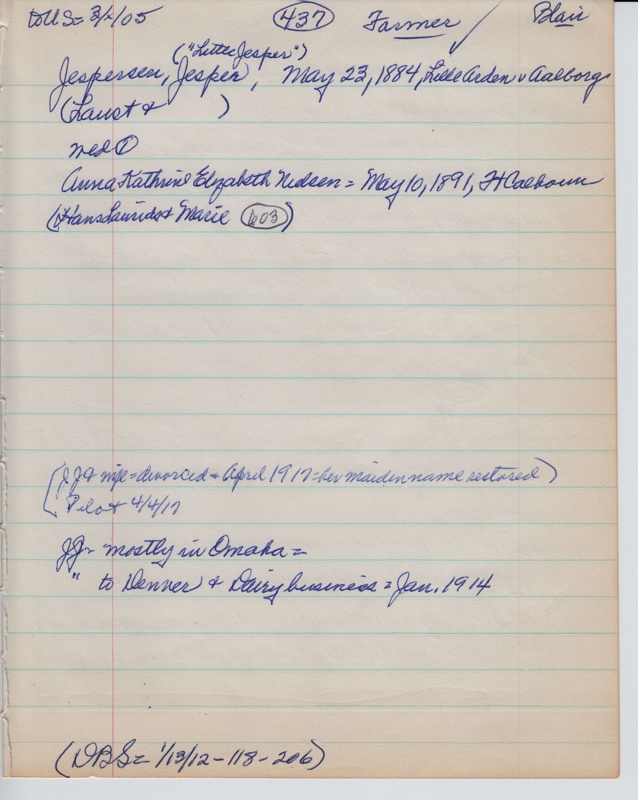 to US = 3/x/05 437 Farmer Blair
("Little Jesper")
Jespersen, Jesper, May 23, 1884, Lille Arden v Aalborg
(Laust & )
med ①
Anna Kathrine Elizabeth Nielsen = May 10, 1891, Ft Calhoun
(Hans Laurids & Marie 603)
(JJ & wife = divorced = April 1917 = her maiden name restored)
Pilot 4/4/17
JJ = mostly in Omaha =
" to Denver & Dairy business = Jan. 1914
(DBS = 1/13/12 - 118 - 206)